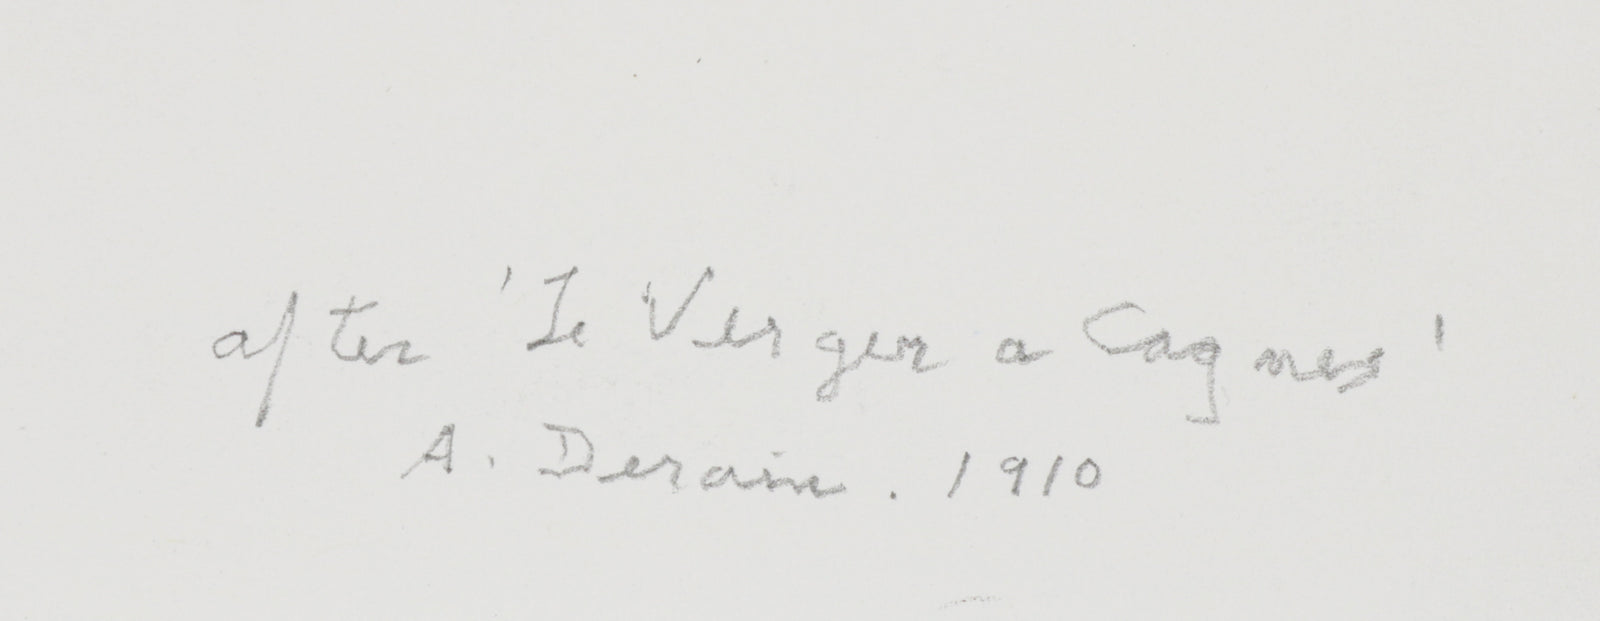 after 'Le Verger a Cagnes'
A. Derain. 1910